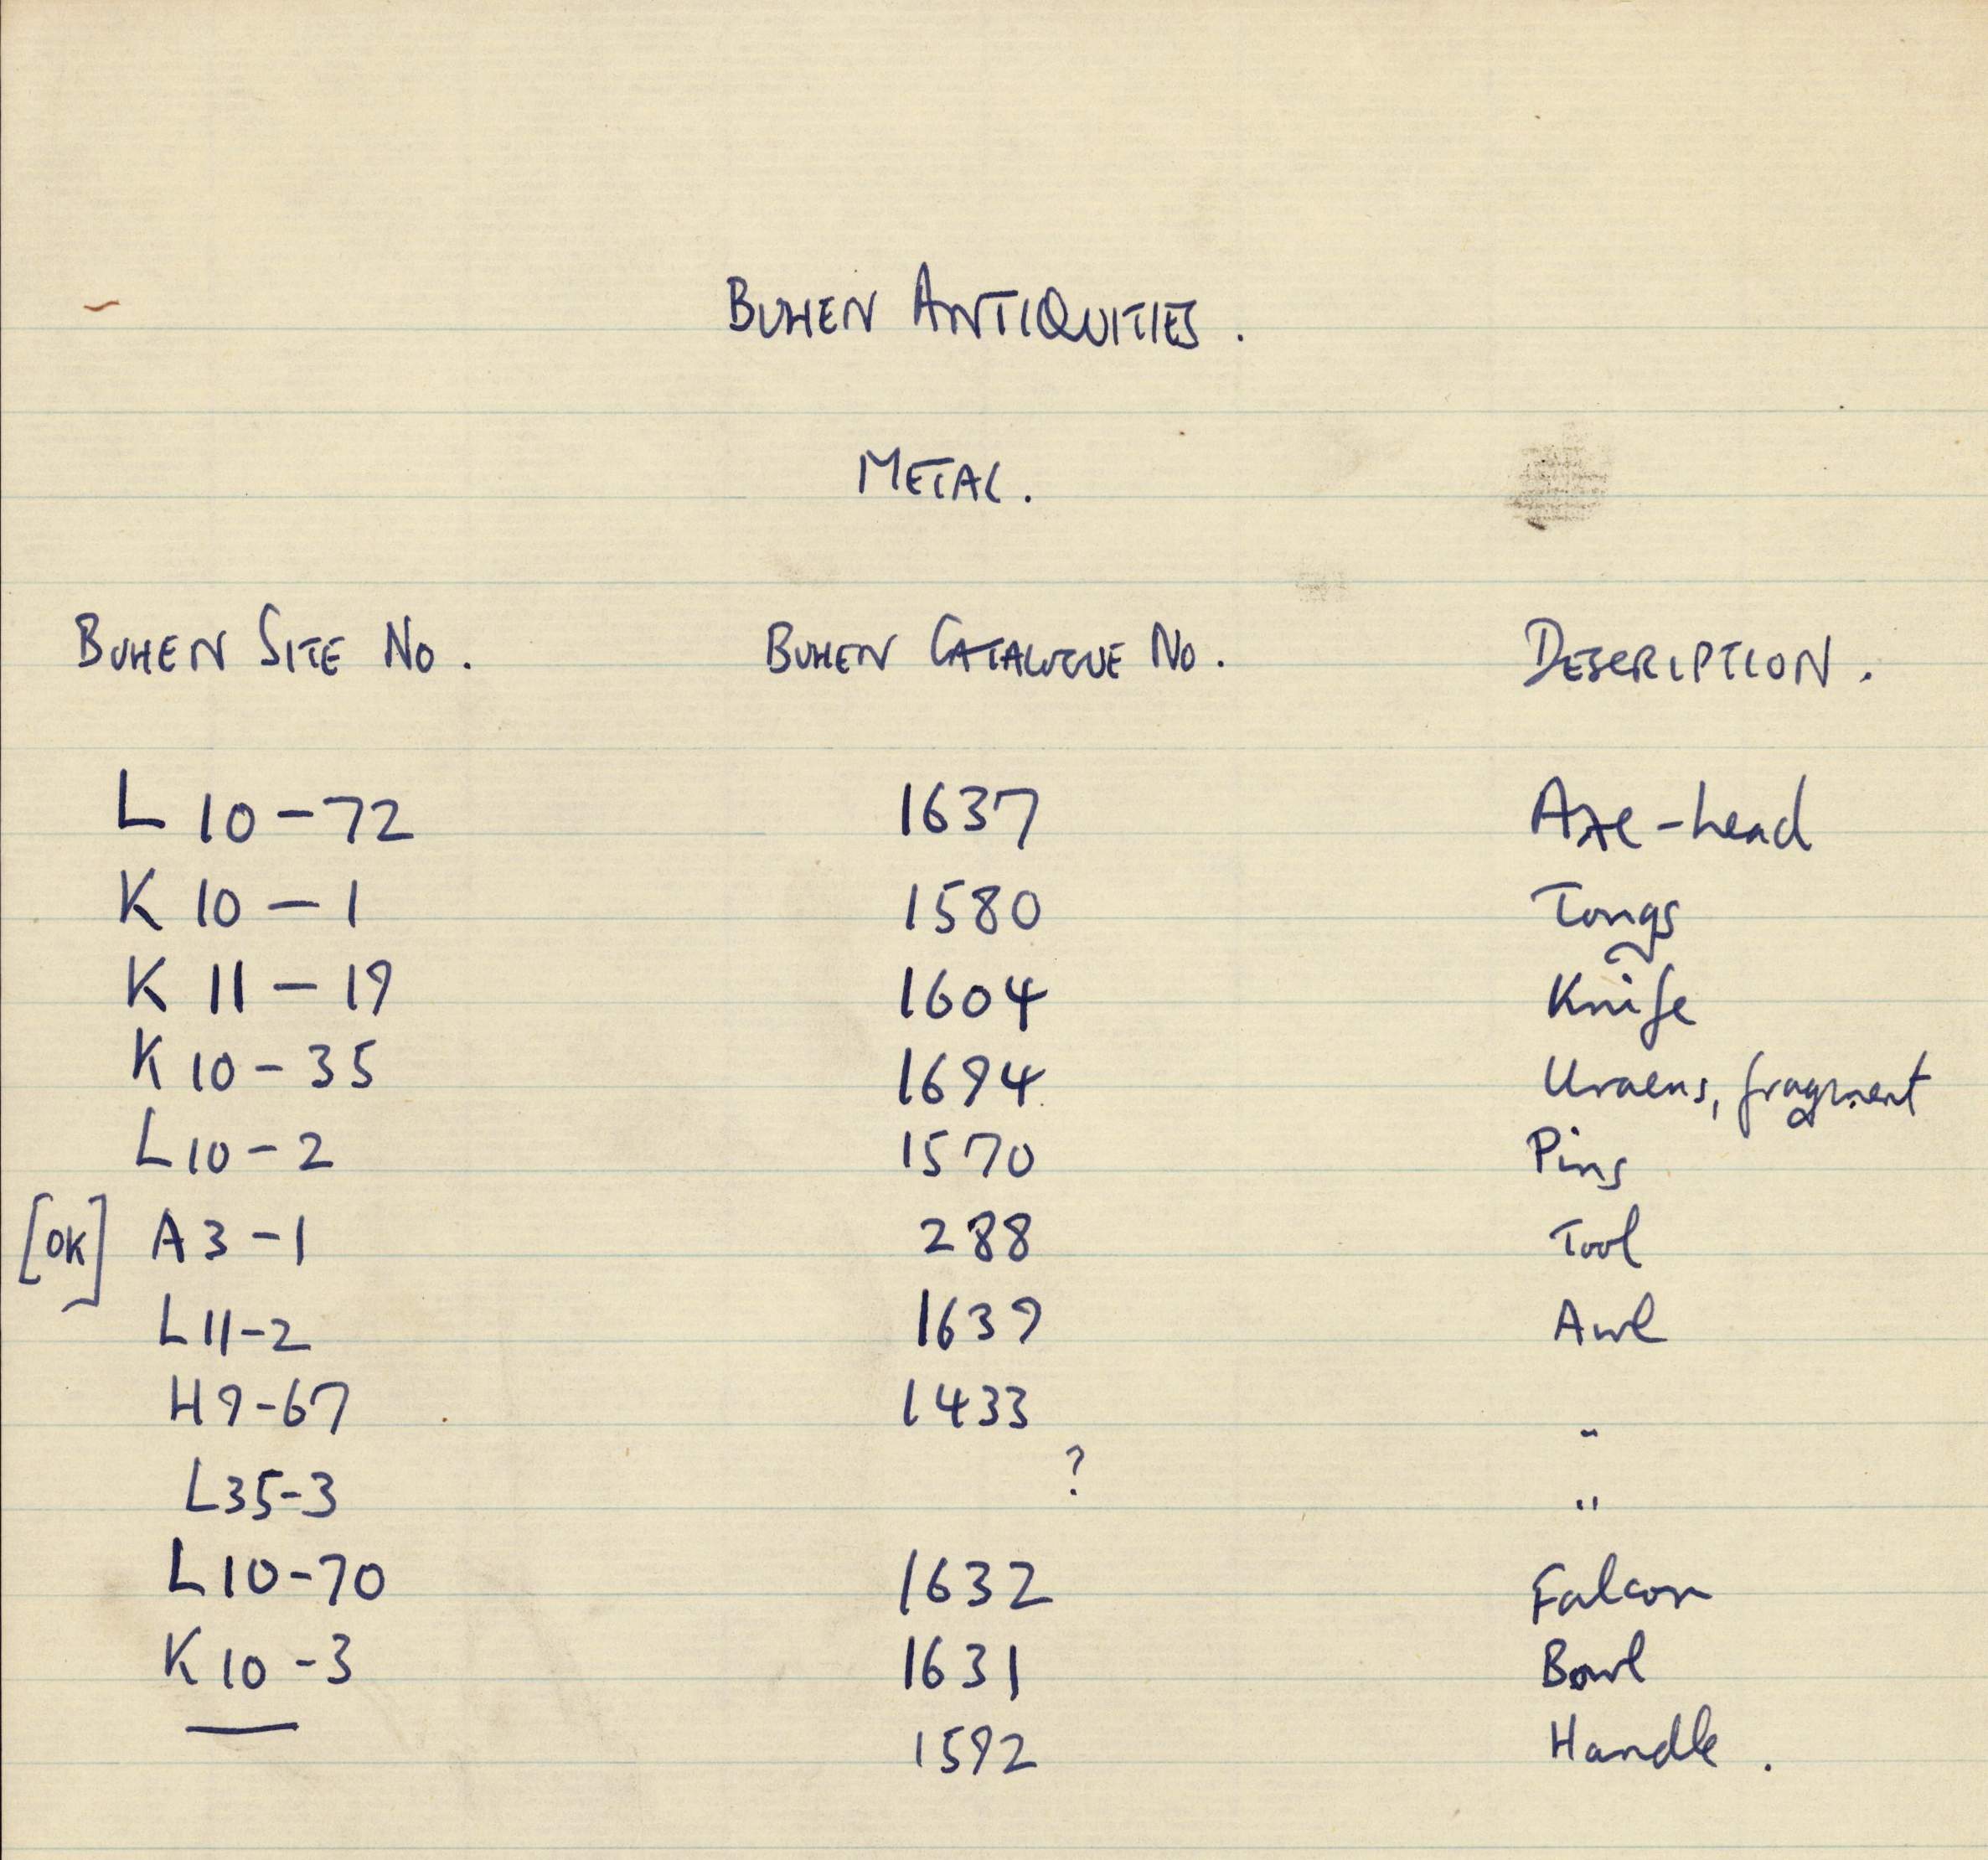 BUHEN ANTIQUITIES.
METAL.
BUHEN SITE NO. BUHEN CATALOGUE NO. DESCRIPTION.
L 10-72 1637 Axe-head
K 10-1 1580 Tongs
K 11-19 1604 Knife
K 10-35 1694 Uraeus, fragment
L10-2 1570 Pins
[OK] A3-1 288 Tool
L11-2 1639 Awl
H9-67 1433 "
L35-3 ? "
L10-70 1632 Falcon
K10-3 1631 Bowl
— 1592 Handle.